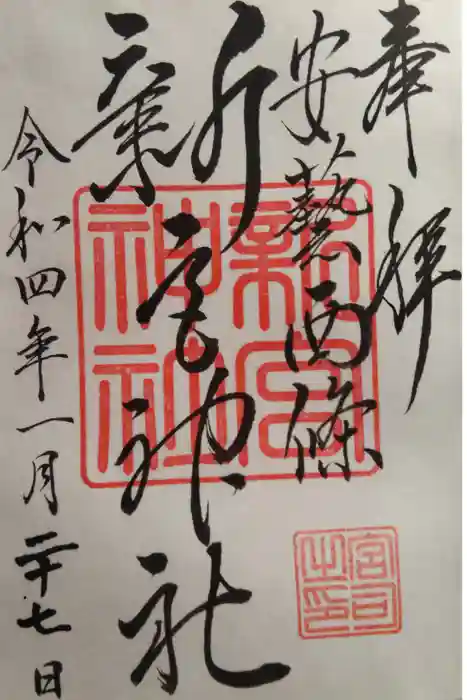 奉拝
安藝西條
新宮神社
新宮神社
宮司之印
令和四年一月二十七日